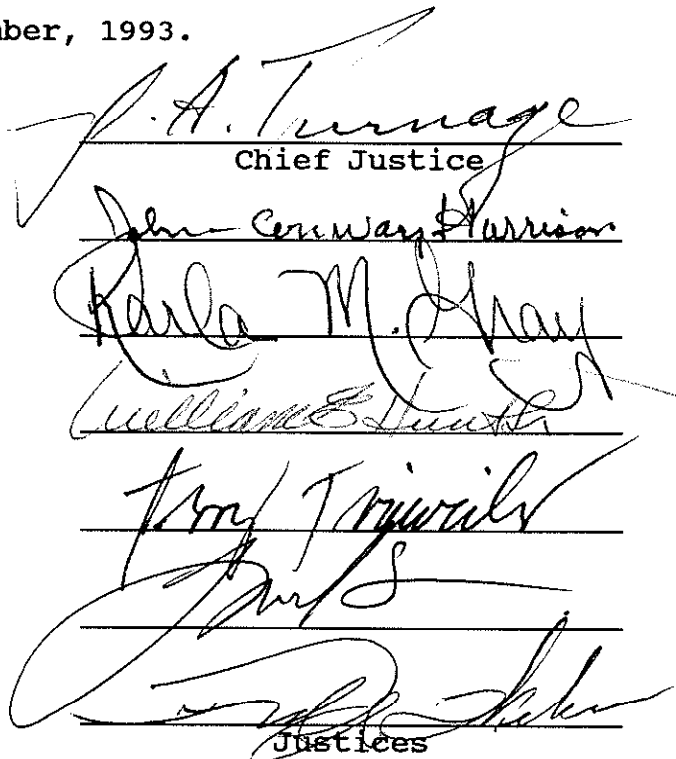 mber, 1993.
J. A. Turnage
Chief Justice
John Conway Harrison
Karla M. Gray
William E Hunter
Terry Trieweiler
Justices